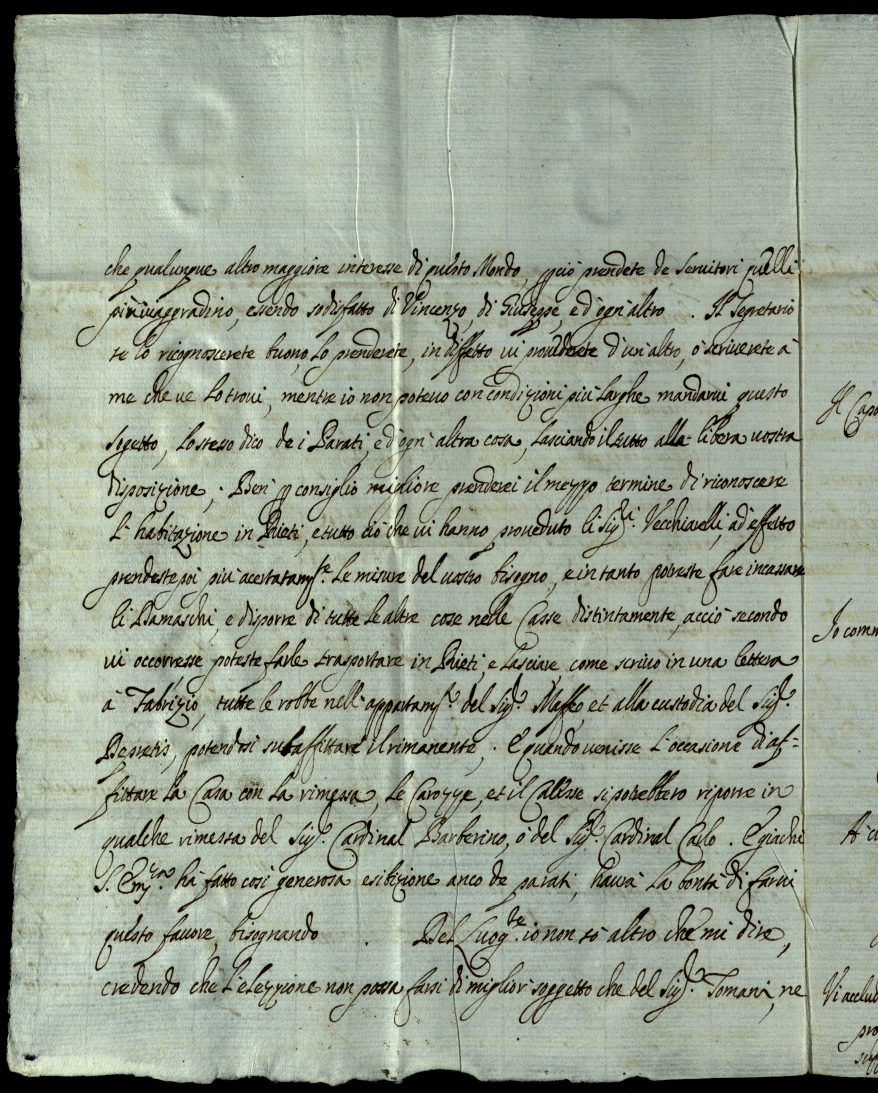 che qualunque altro maggiore interesse di questo Mondo, p̱ciò prendete de Servitori quelli
più v'aggradino, essendo sodisfatto di Vincenzo, di Giuseppe, e d'ogn'altro . Il Segretario
se lo ricognoscerete buono lo prenderete, in diffetto vi provederete d'un'altro, ò scriverete à
me che ve lo trovi, mentre io non potevo con condizioni più larghe mandarvi questo
sogetto, lo stesso dico de i Parati, e d'ogn'altra cosa, lasciando il tutto alla libera vostra
disposizione ; Ben' p̱ consiglio migliore prenderei il mezzo termine di riconoscere
l'habitazione in Rieti, e tutto ciò che vi hanno proveduto li Sig.ri Vecchiarelli, ad effetto
prendeste poi più acertatam.te le misure del vostro bisogno, e in tanto potreste fare incassare
li Damaschi, e disporre di tutte le altre cose nelle Casse distintamente, acciò secondo
vi occorresse poteste farle trasportare in Rieti, e lasciare, come scrivo in una lettera
à Fabrizio, tutte le robbe nell'appartam.to del Sig.r Maffeo, et alla custodia del Sig.r
Depretis, potendosi subaffittare il rimanente, . E quando venisse l'occasione di af=
fittare la Casa con la rimessa, le Carozze, et il Calesse si potrebbero riporre in
qualche rimessa del Sig.r Cardinal Barberino, ò del Sig.r Cardinal Carlo . E giachè
S. Em.za hà fatto così generosa esibizione anco de parati, havrà la bontà di farvi
questo favore, bisognando . Del Luog.te io non sò altro che mi dire,
credendo che l'elezzione non possa farsi di miglior soggetto che del Sig.r Tomani, ne
Il Capo
Io comm
A c
Vi acclud
pro